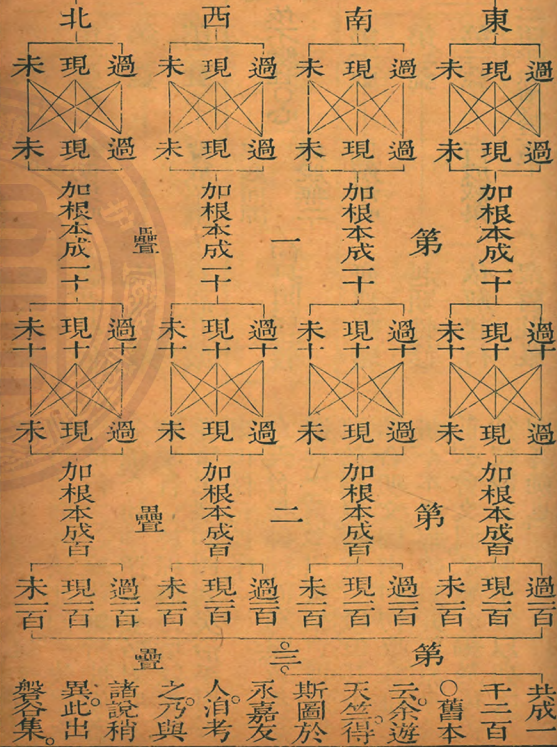 東 南 西 北
過 現 未 過 現 未 過 現 未 過 現 未
過 現 未 過 現 未 過 現 未 過 現 未
加根本成一十
加根本成一十
加根本成一十
加根本成一十
第一疊
過十 現十 未十 過十 現十 未十 過十 現十 未十 過十 現十 未十
過 現 未 過 現 未 過 現 未 過 現 未
加根本成百
加根本成百
加根本成百
加根本成百
第二疊
過一百 現一百 未一百 過一百 現一百 未一百 過一百 現一百 未一百 過一百 現一百 未一百
第三疊
共成一
千二百
○舊本
云。余遊
天竺得
斯圖於
永嘉友
人。洎考
之。乃與
諸說稍
異。此出
磐谷集。